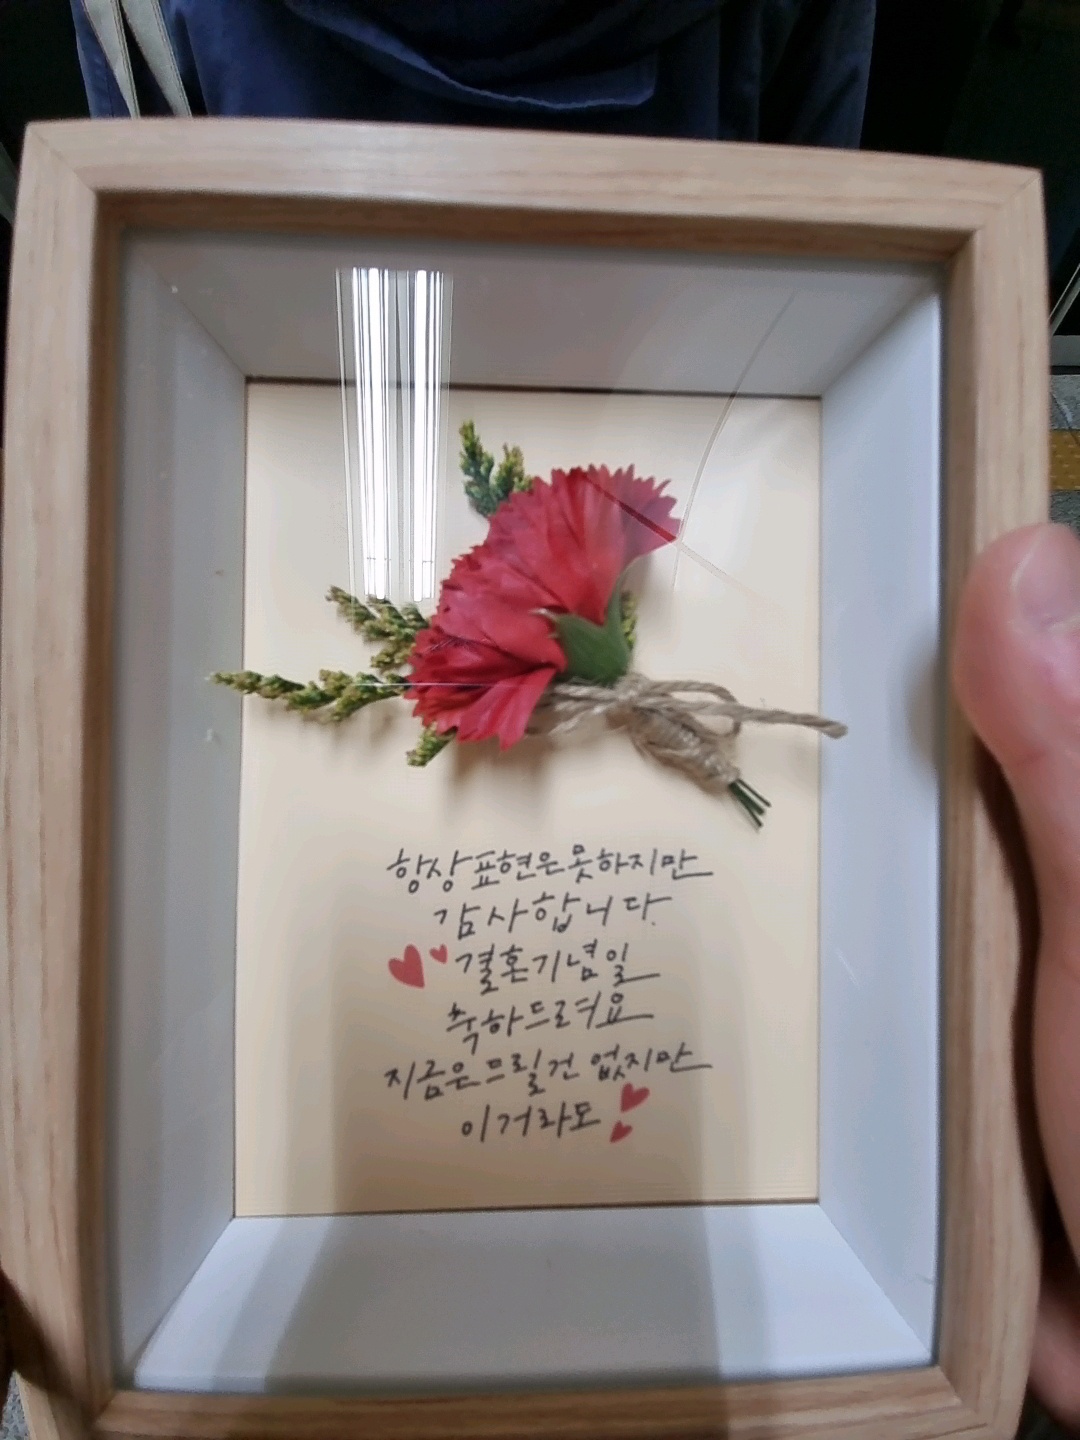 항상 표현은 못하지만
감사합니다.
결혼기념일
축하드려요
지금은 드릴건 없지만
이거라도